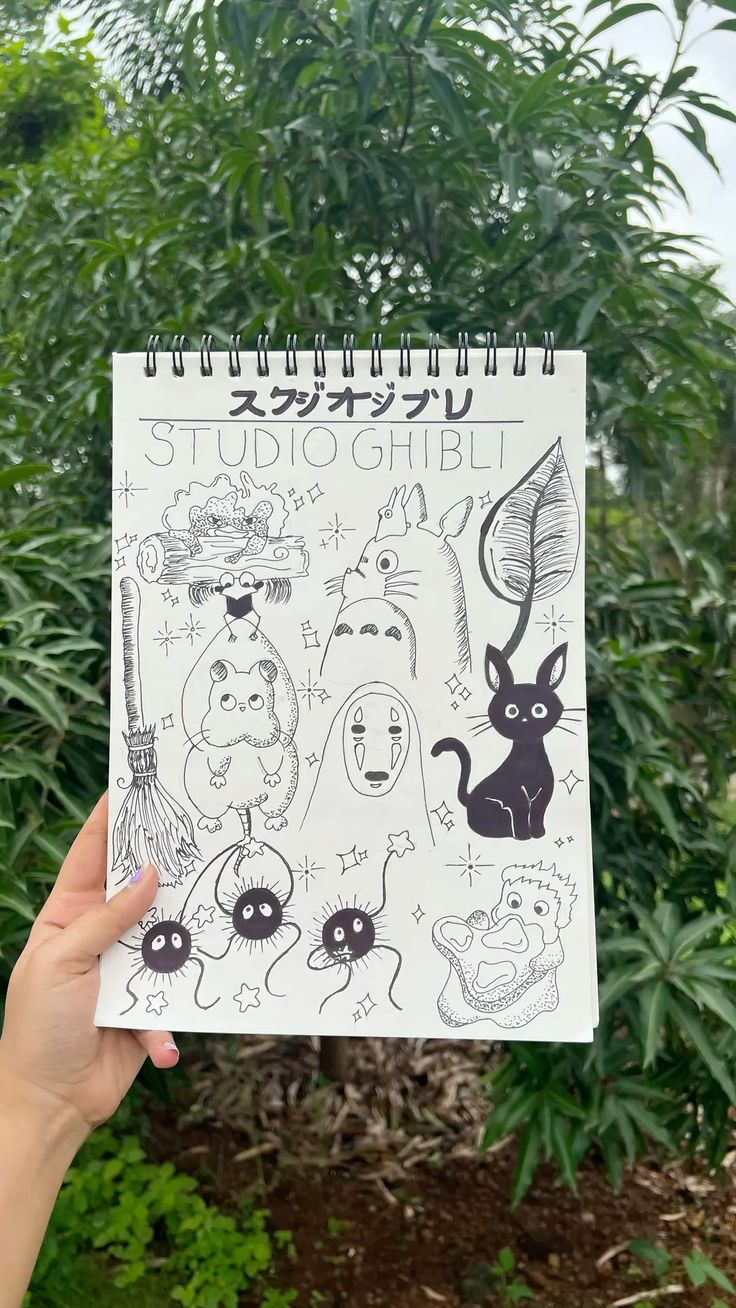 スクジオジブリ
STUDIO GHIBLI